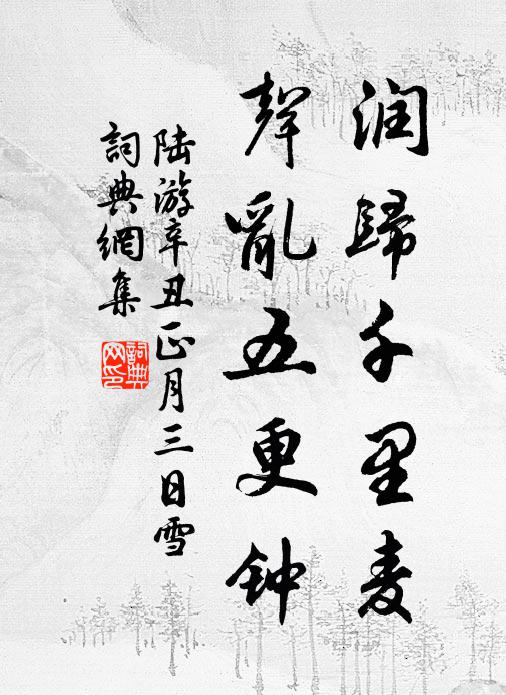 润歸千里麦
聲亂五更钟
陆游辛丑正月三日雪
詞典網集
詞典网印